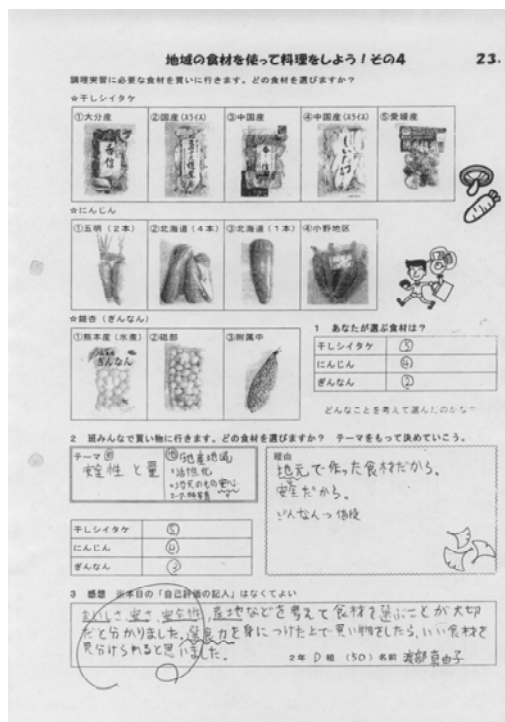 地域の食材を使って料理をしよう！その4
23.
調理実習に必要な食材を買いに行きます。どの食材を選びますか？
☆干しシイタケ
①大分産 ②国産(スライス) ③中国産 ④中国産(スライス) ⑤愛媛産
☆にんじん
①五明（2本） ②北海道（4本） ③北海道（1本） ④小野地区
☆銀杏（ぎんなん）
①熊本産（水煮） ②砥部 ③附属中
ぎんなん
1 あなたが選ぶ食材は？
干しシイタケ ⑤
にんじん ④
ぎんなん ②
どんなことを考えて選んだのかな
2 班みんなで買い物に行きます。どの食材を選びますか？ テーマをもって決めていこう。
テーマ
安全性と量
地産地消
・活性化
干しシイタケ ⑤
にんじん ④
ぎんなん ③
理由
地元で作った食材だから。
安全だから。
ぎんなん→値段
3 感想 ※本日の「自己評価の記入」はなくてよい
おいしさ、安さ、安全性、産地などを考えて食材を選ぶことが大切
だと分かりました。選ぶ力を身につけた上で買い物をしたら、いい食材を
見分けられると思いました。
2年 D組 (50) 名前 渡部真由子